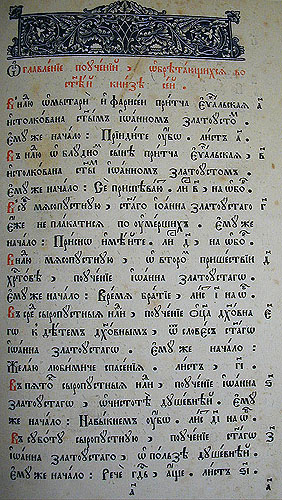 Ѡглавленїе поученїй, ѡбрѣтающихсѧ во
ст҃ѣй книзѣ сей.
В нлю ѡ мытари и фарисеи притча еѵⷢльская
истолкована ст҃ымъ їѡанномъ златоустоⷨ.
Емуже начало: Прїидите убѡ. листъ а҃.
В нлю ѡ блудноⷨ сынѣ притча еѵⷢльская,
истолкована ст҃ыⷨ їѡанномъ златоустомъ.
Емуже начало: Се приспѣваю. лиⷭ в҃ на ѡбо.
В суⷠ мясопустную, ст҃аго їоанна златоустаго
еже не плакатися по умершихъ. Емуже
начало: Приснѡ имѣите. лиⷭ д҃, на ѡбо.
В нлю мясопустную, ѡ второⷨ пришествїи
хрⷭтовѣ, поученїе їѡанна златоустагѡ.
Емуже начало: Время братїе, лиⷭ і҃ на ѡ.
В среⷣ сыропустныя нли, поученїе оц҃а дх҃овна
к дѣтемъ духовнымъ, ѿ словесъ ст҃агѡ
їѡанна златоустагѡ. Емуже начало:
Желаю любимичe спасенїя. листъ, гі҃.
В пятоⷦ сыропустныя нли, поученїе їѡанна
златоустагѡ, ѡ чистотѣ душевнѣй. Ему
же начало: Навыкнемъ убѡ. лиⷭ ді҃ на ѡ.
В суботу сыропустную, поученїе ст҃агѡ
їѡанна златоустаго, ѡ пользѣ душевнѣй.
Емуже начало: Рече гд҃ь, аще. листъ ѕі҃.
а҃